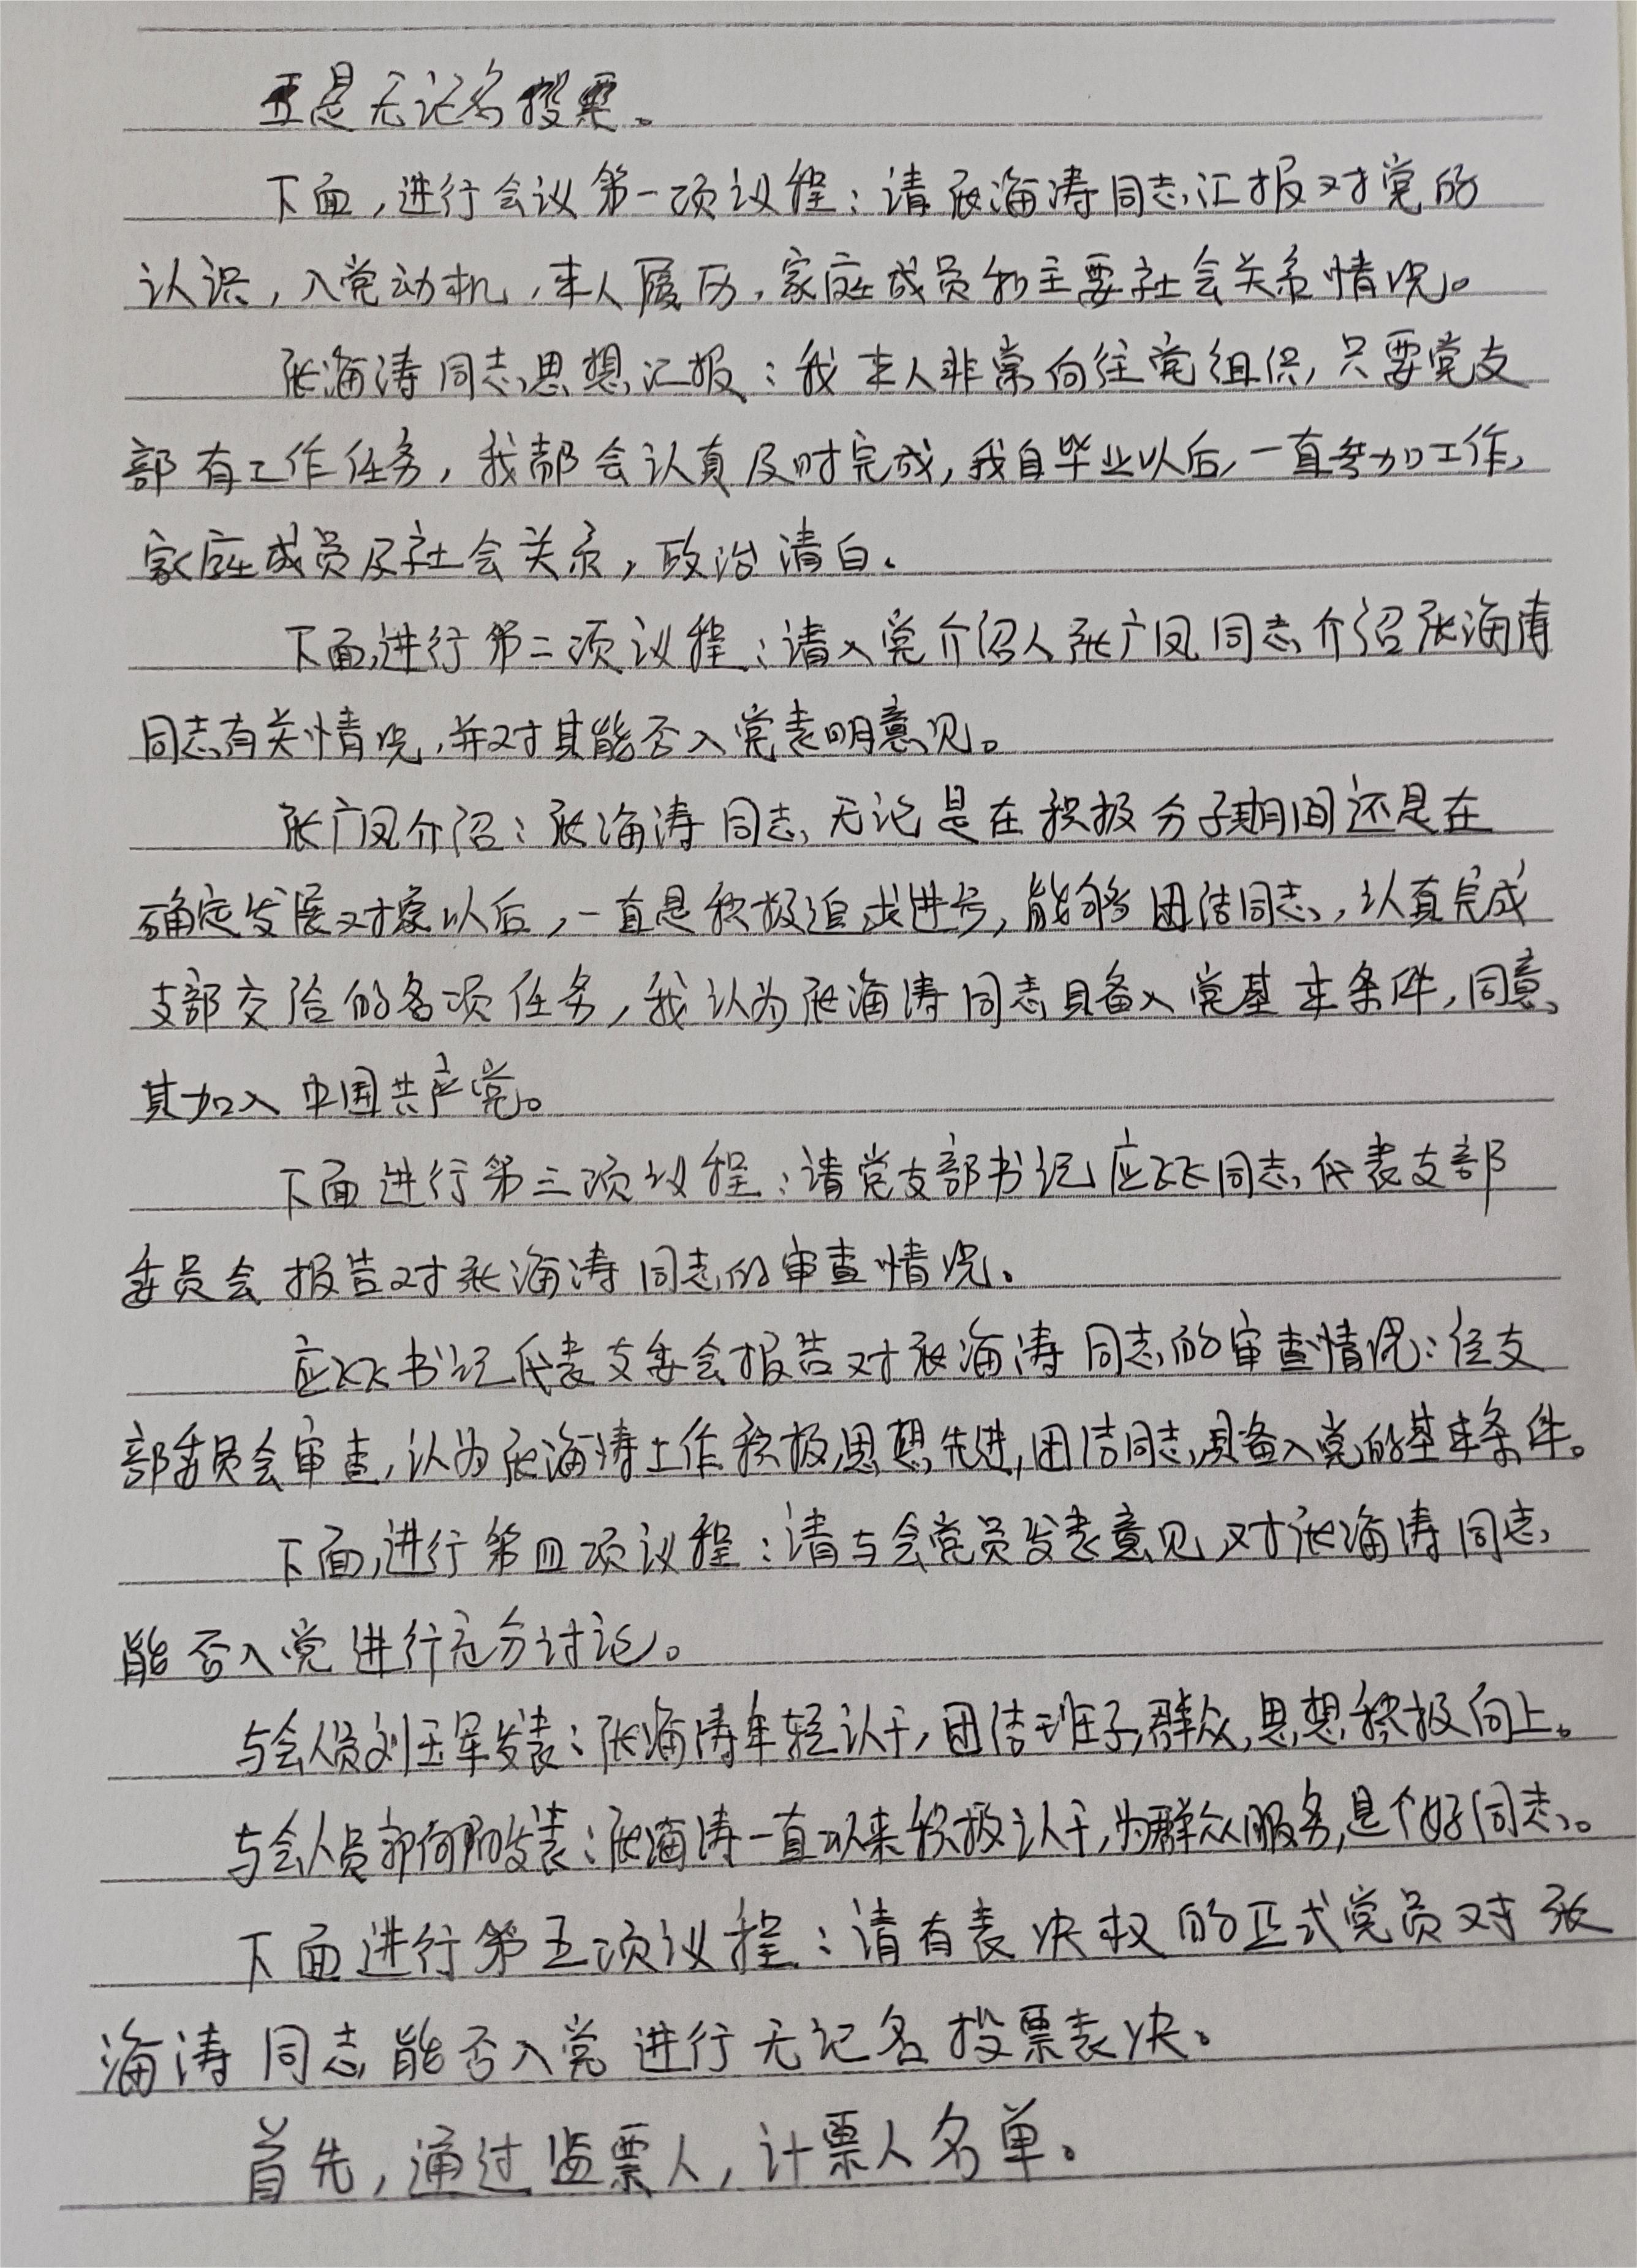 五是无记名投票。
下面，进行会议第一项议程：请张海涛同志汇报对党的
认识，入党动机，本人履历，家庭成员和主要社会关系情况。
张海涛同志思想汇报：我本人非常向往党组织，只要党支
部有工作任务，我都会认真及时完成，我自毕业以后，一直参加工作，
家庭成员及社会关系，政治清白。
下面，进行第二项议程：请入党介绍人张广凤同志介绍张海涛
同志有关情况，并对其能否入党表明意见。
张广凤介绍：张海涛同志，无论是在积极分子期间还是在
确定发展对象以后，一直是积极追求进步，能够团结同志，认真完成
支部交给的各项任务，我认为张海涛同志具备入党基本条件，同意
其加入中国共产党。
下面进行第三项议程：请党支部书记应同志代表支部
委员会报告对张海涛同志的审查情况。
应书记代表支委会报告对张海涛同志的审查情况：经支
部委员会审查，认为张海涛工作积极，思想先进，团结同志，具备入党的基本条件。
下面，进行第四项议程：请与会党员发表意见，对张海涛同志
能否入党进行充分讨论。
与会人员刘玉军发表：张海涛年轻认干，团结班子，群众，思想积极向上。
与会人员郭向阳发表：张海涛一直以来积极认干，为群众服务，是个好同志。
下面进行第五项议程：请有表决权的正式党员对张
海涛同志能否入党进行无记名投票表决。
首先，通过监票人，计票人名单。